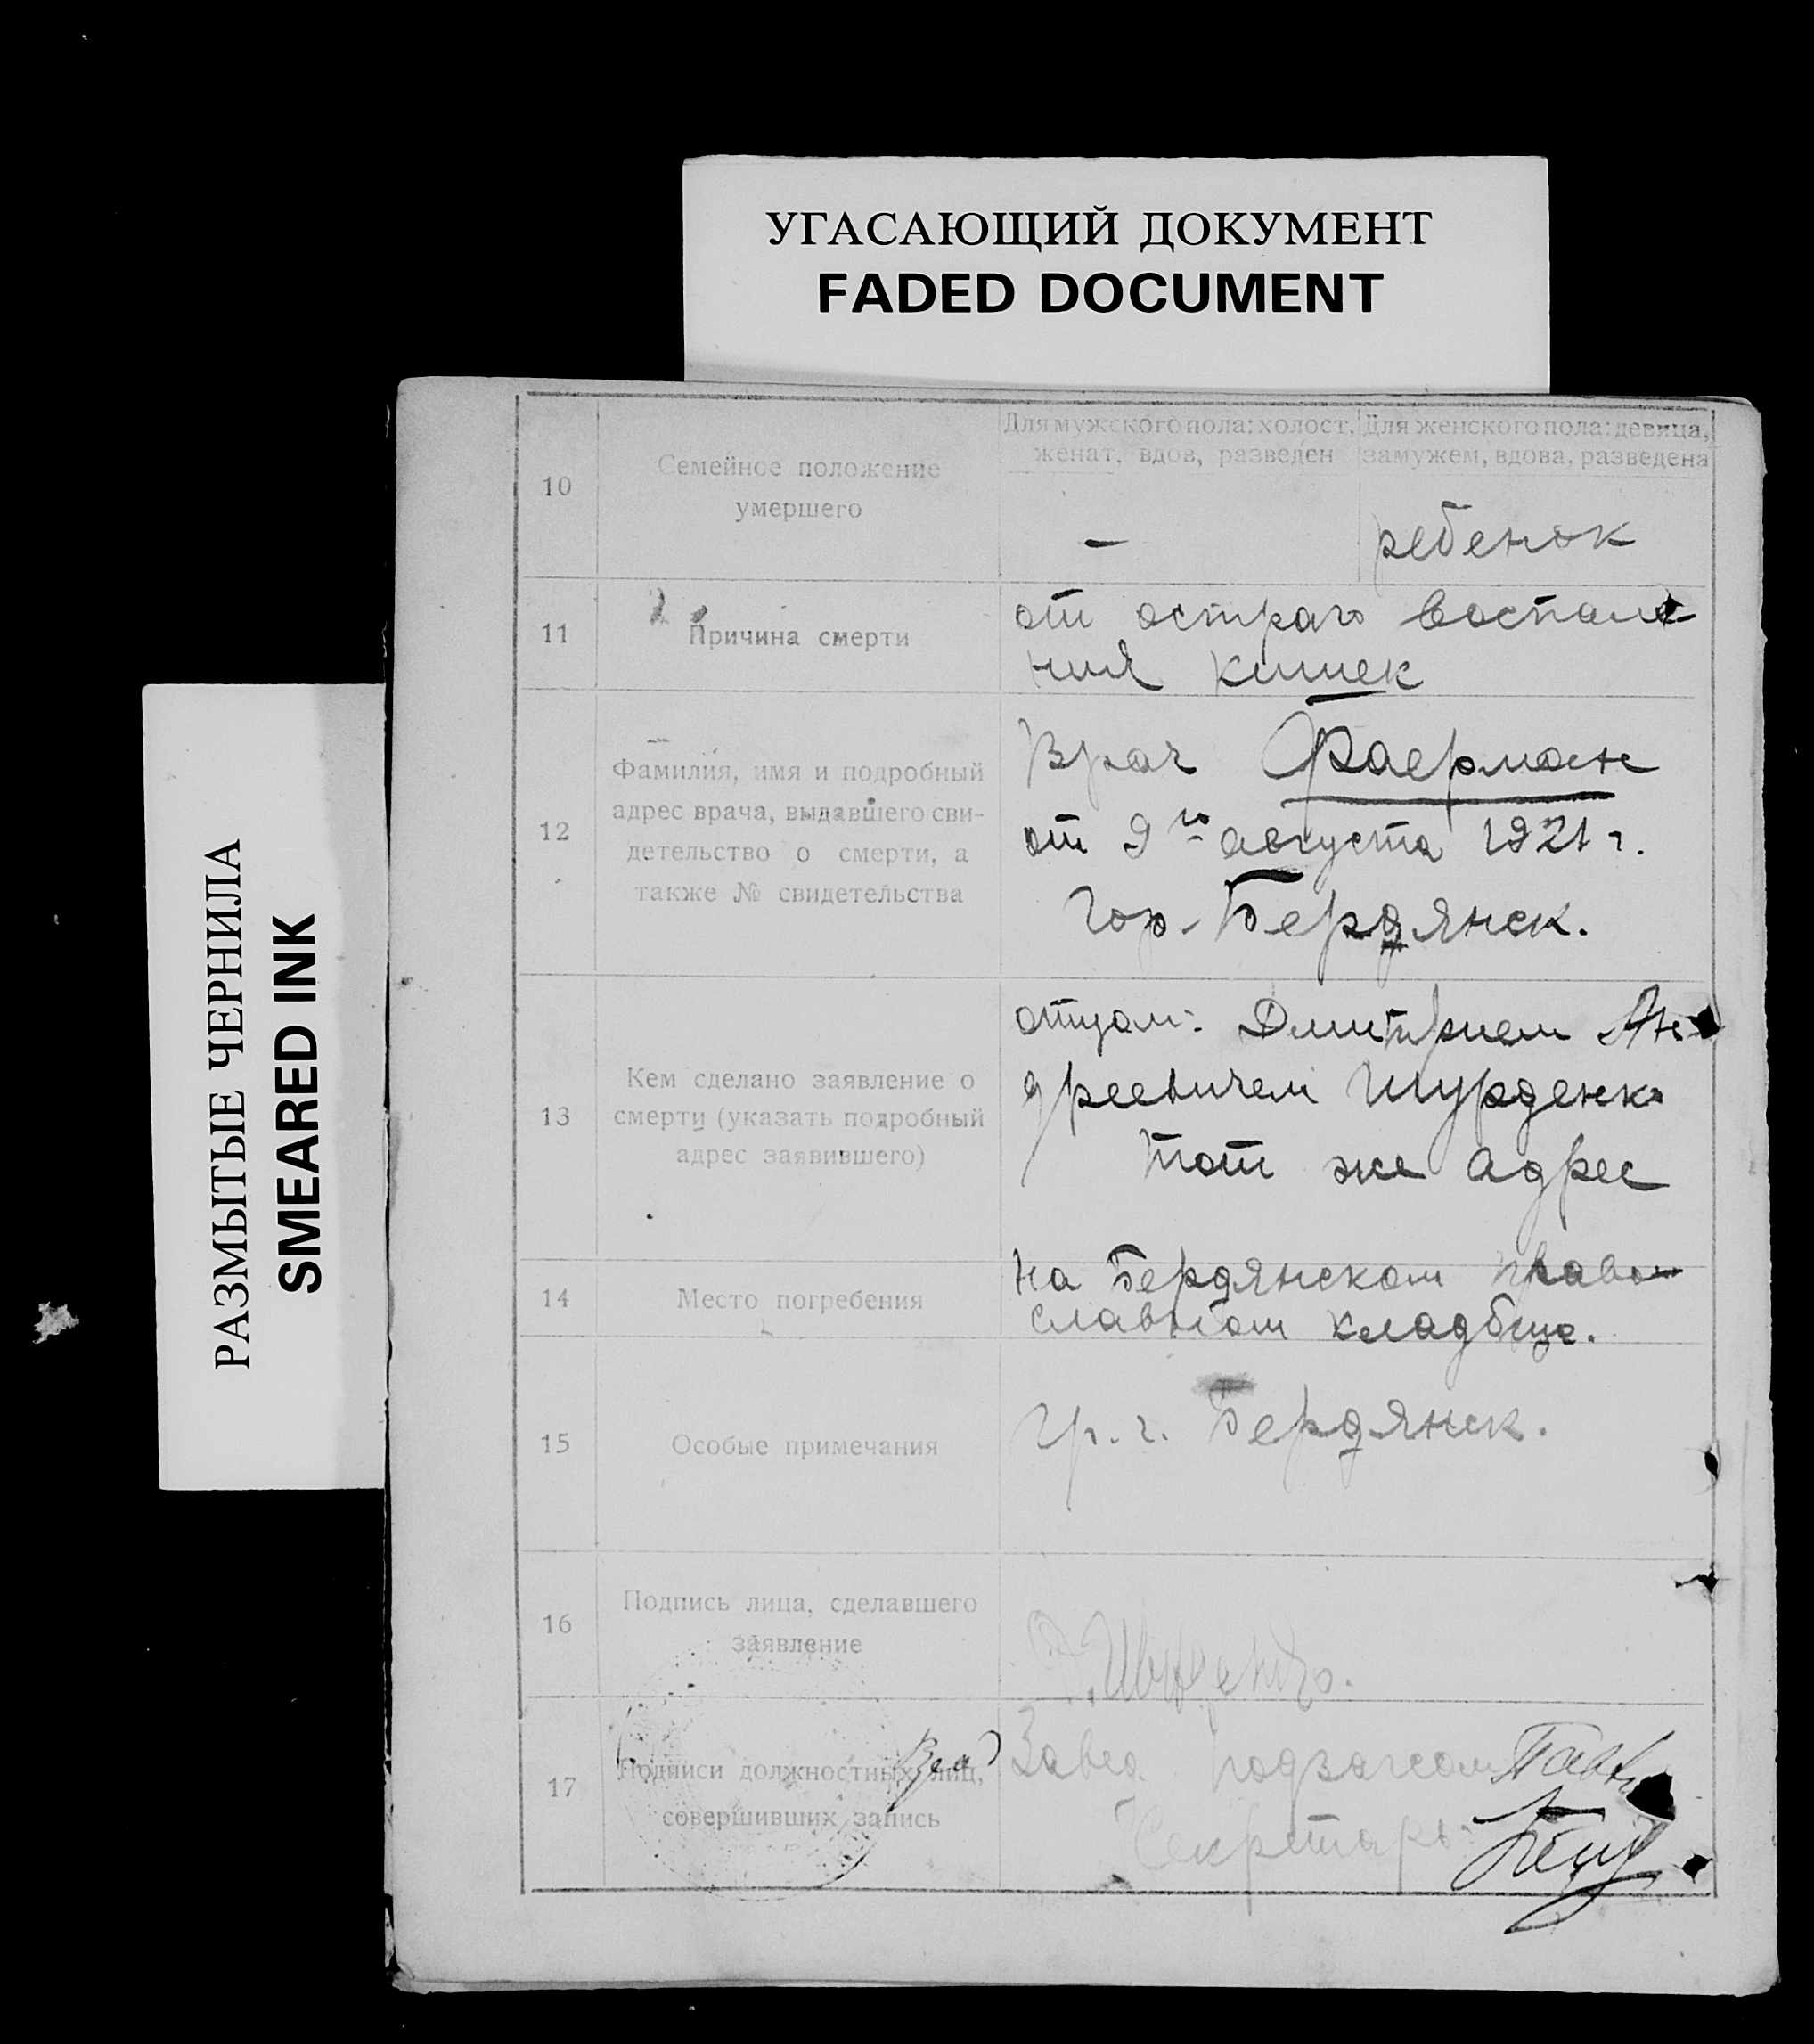 УГАСАЮЩИЙ ДОКУМЕНТ
FADED DOCUMENT
РАЗМЫТЫЕ ЧЕРНИЛА
SMEARED INK
10
Семейное положение
умершего
Для мужского пола: холост,
женат, вдов, разведен
Для женского пола: девица,
замужем, вдова, разведена
–
ребенок
11
Причина смерти
от остраго воспале
ния кишек
12
Фамилия, имя и подробный
адрес врача, выдавшего сви-
детельство о смерти, а
также № свидетельства
Врач Фаерман
от 9го августа 1921 г.
Гор. Бердянск.
13
Кем сделано заявление о
смерти (указать подробный
адрес заявившего)
отцом: Дмитрием Ан
дреевичем Шурденко
тот же адрес
14
Место погребения
на Бердянском право
славном кладбище.
15
Особые примечания
гр. г. Бердянск.
16
Подпись лица, сделавшего
заявление
17
Подписи должностных лиц,
совершивших запись
Завед. подзагсом
Секретарь